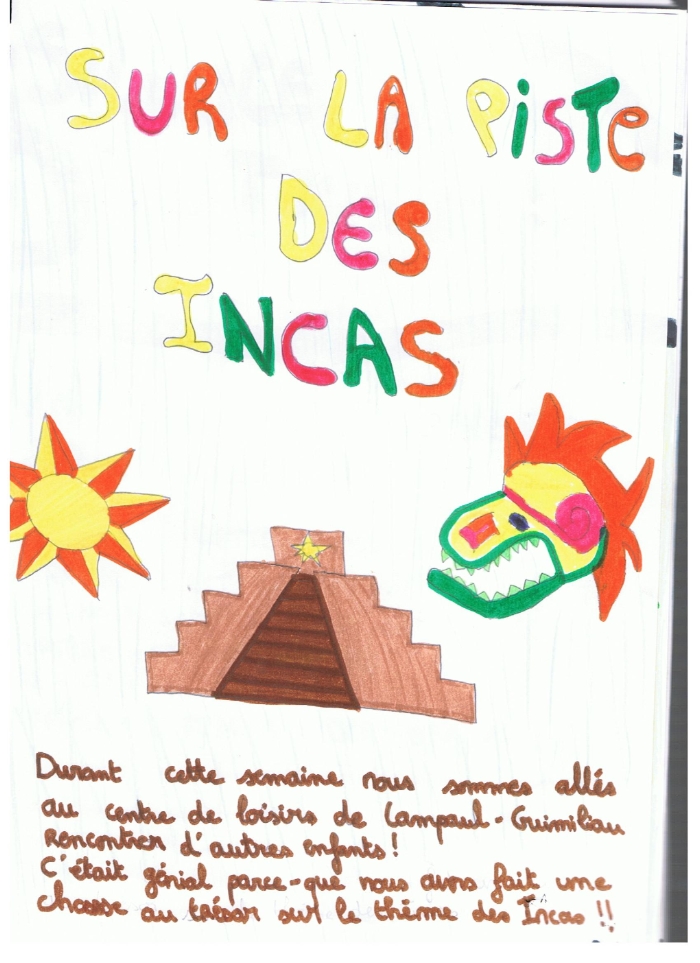 SUR LA PISTE
DES
INCAS
Durant cette semaine nous sommes allés
au centre de loisirs de Lampaul-Guimiliau
Rencontrer d'autres enfants !
C'était génial parce-que nous avons fait une
chasse au trésor sur le thème des Incas !!